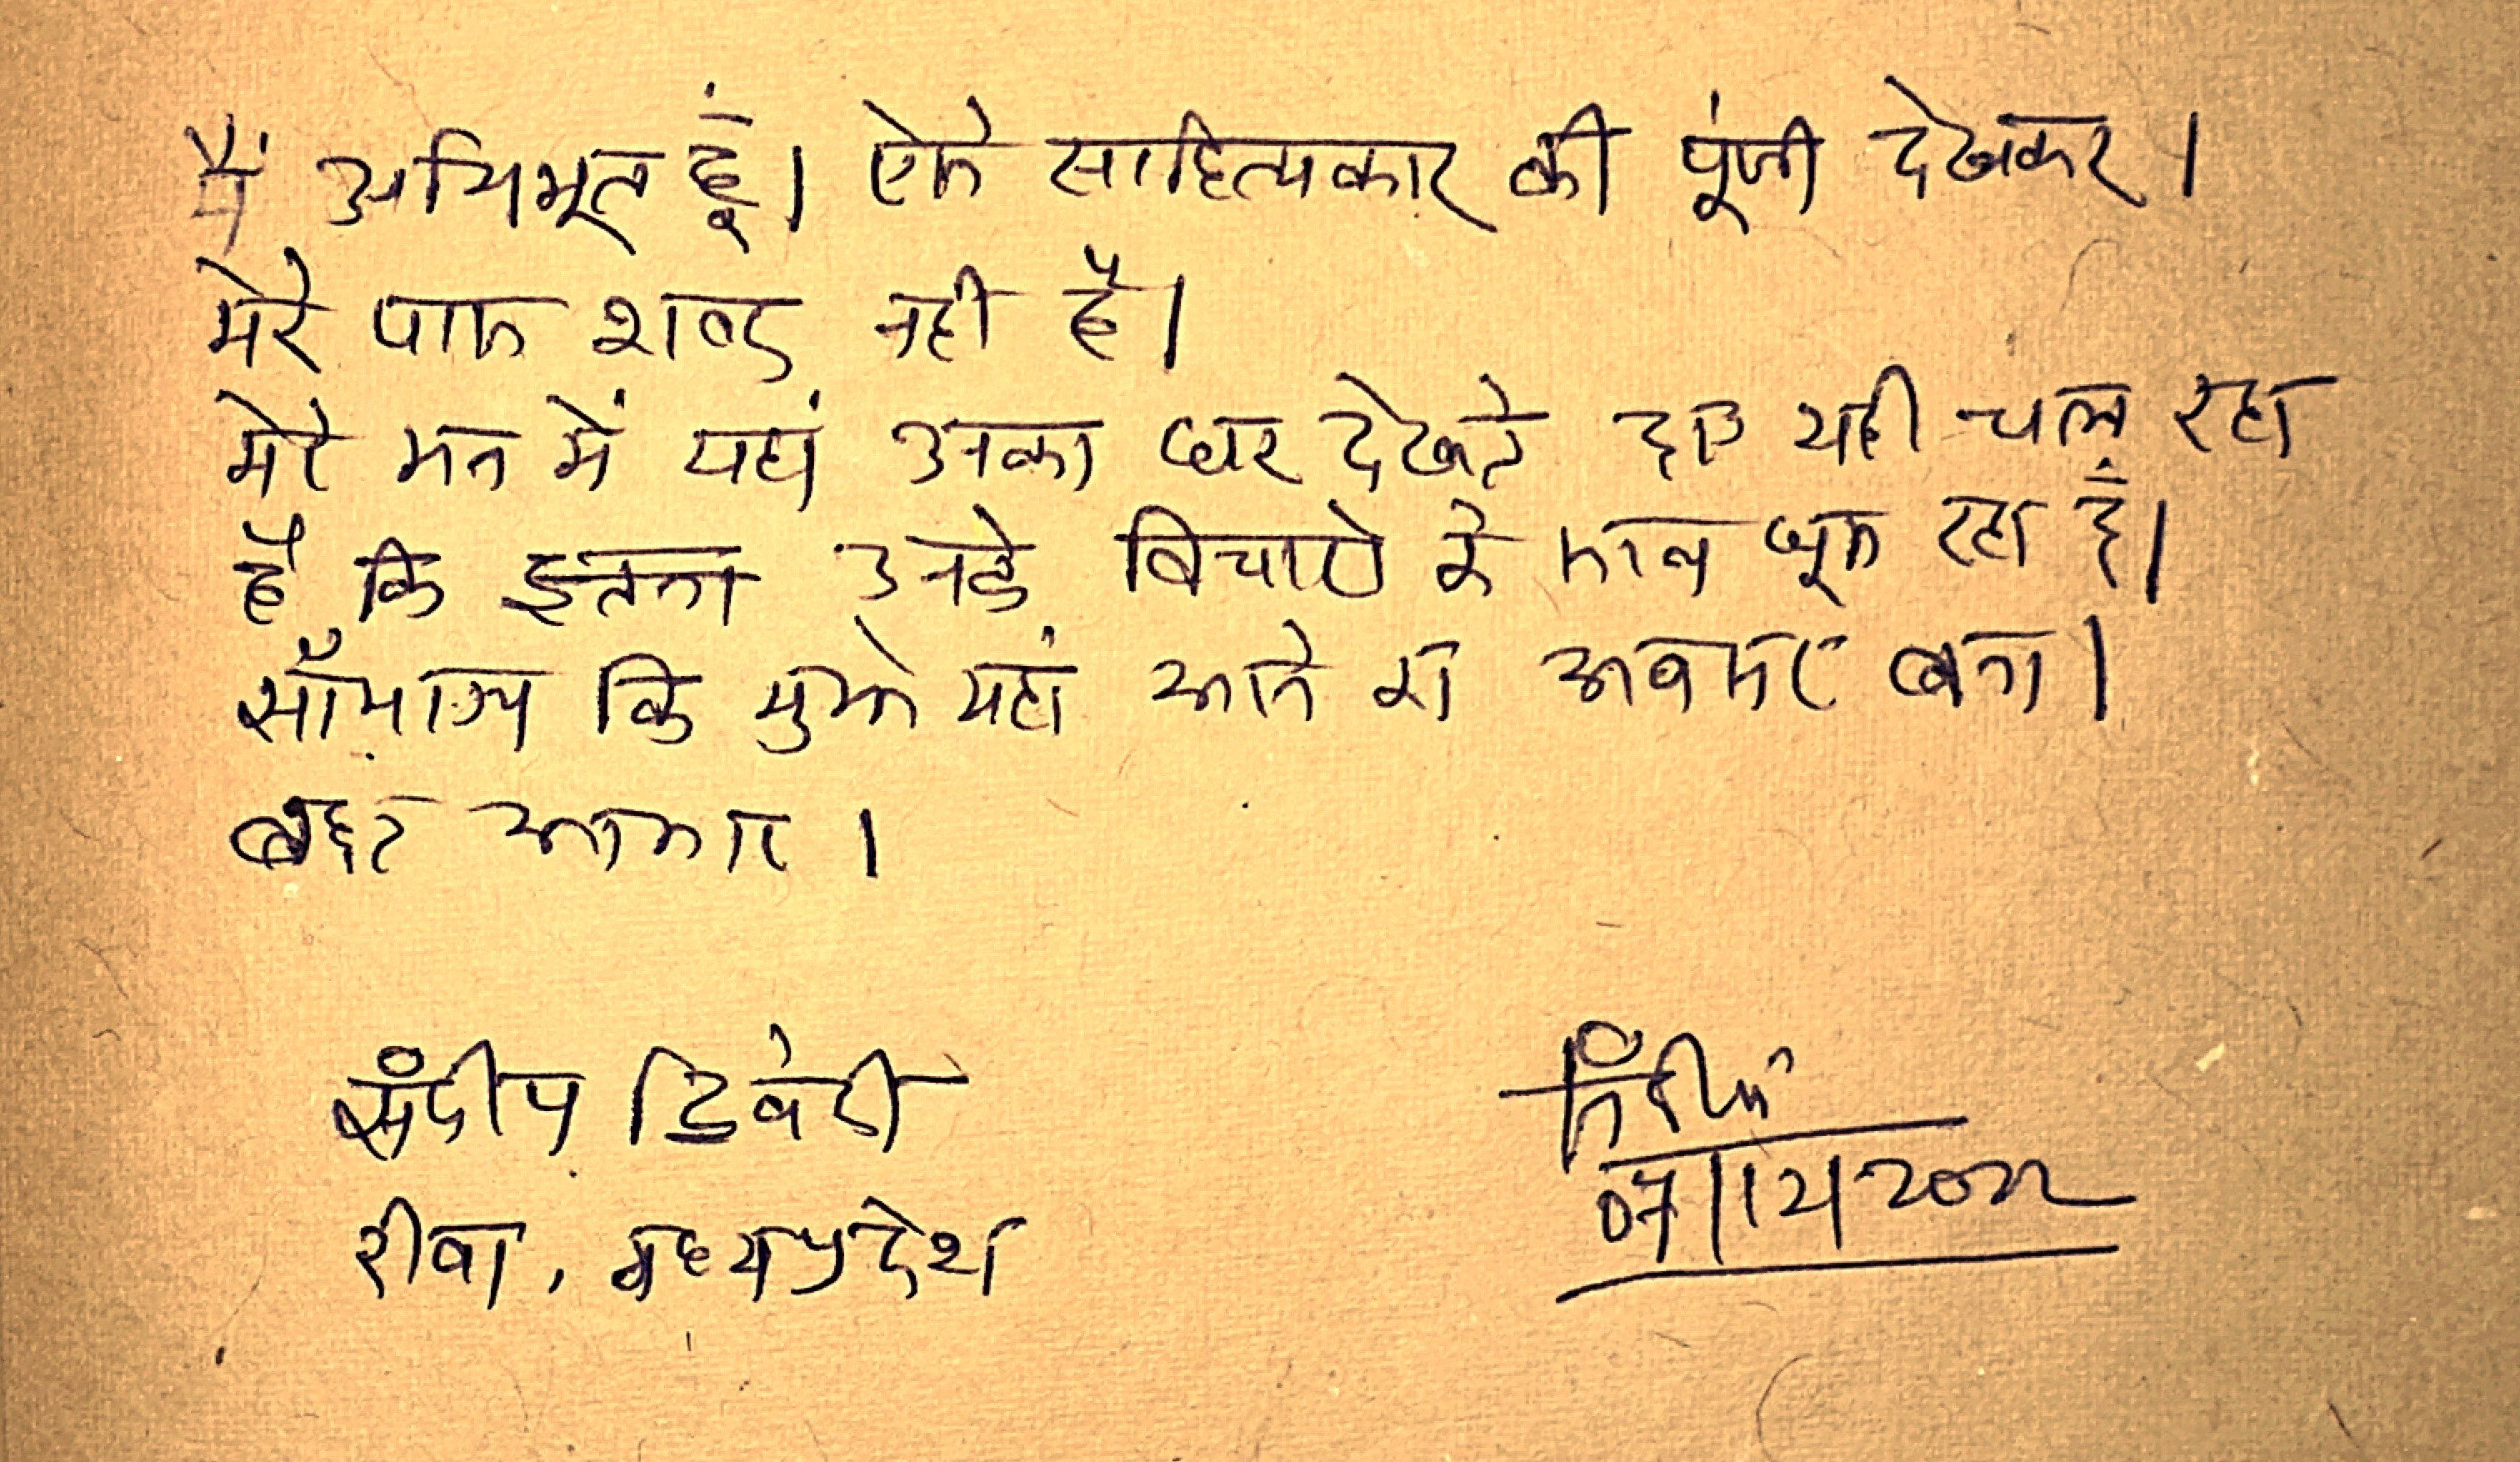 मैं अभिभूत हूं। ऐसे साहित्यकार की पूंजी देखकर।
मेरे पास शब्द नही है।
मेरे मन में यहां उनका घर देखते हुए यही चल रहा
है कि इतना उनके विचारो के साथ घूम रहा हूं।
सौभाग्य कि मुझे यहां आने का अवसर बना।
बहुत आभार।
संदीप द्विवेदी
रीवा, मध्यप्रदेश